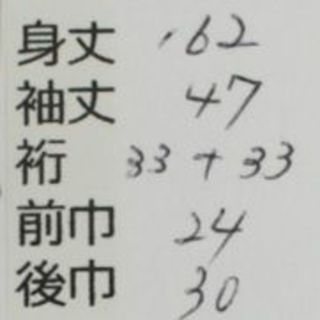 身丈 162
袖丈 47
裄 33 + 33
前巾 24
後巾 30